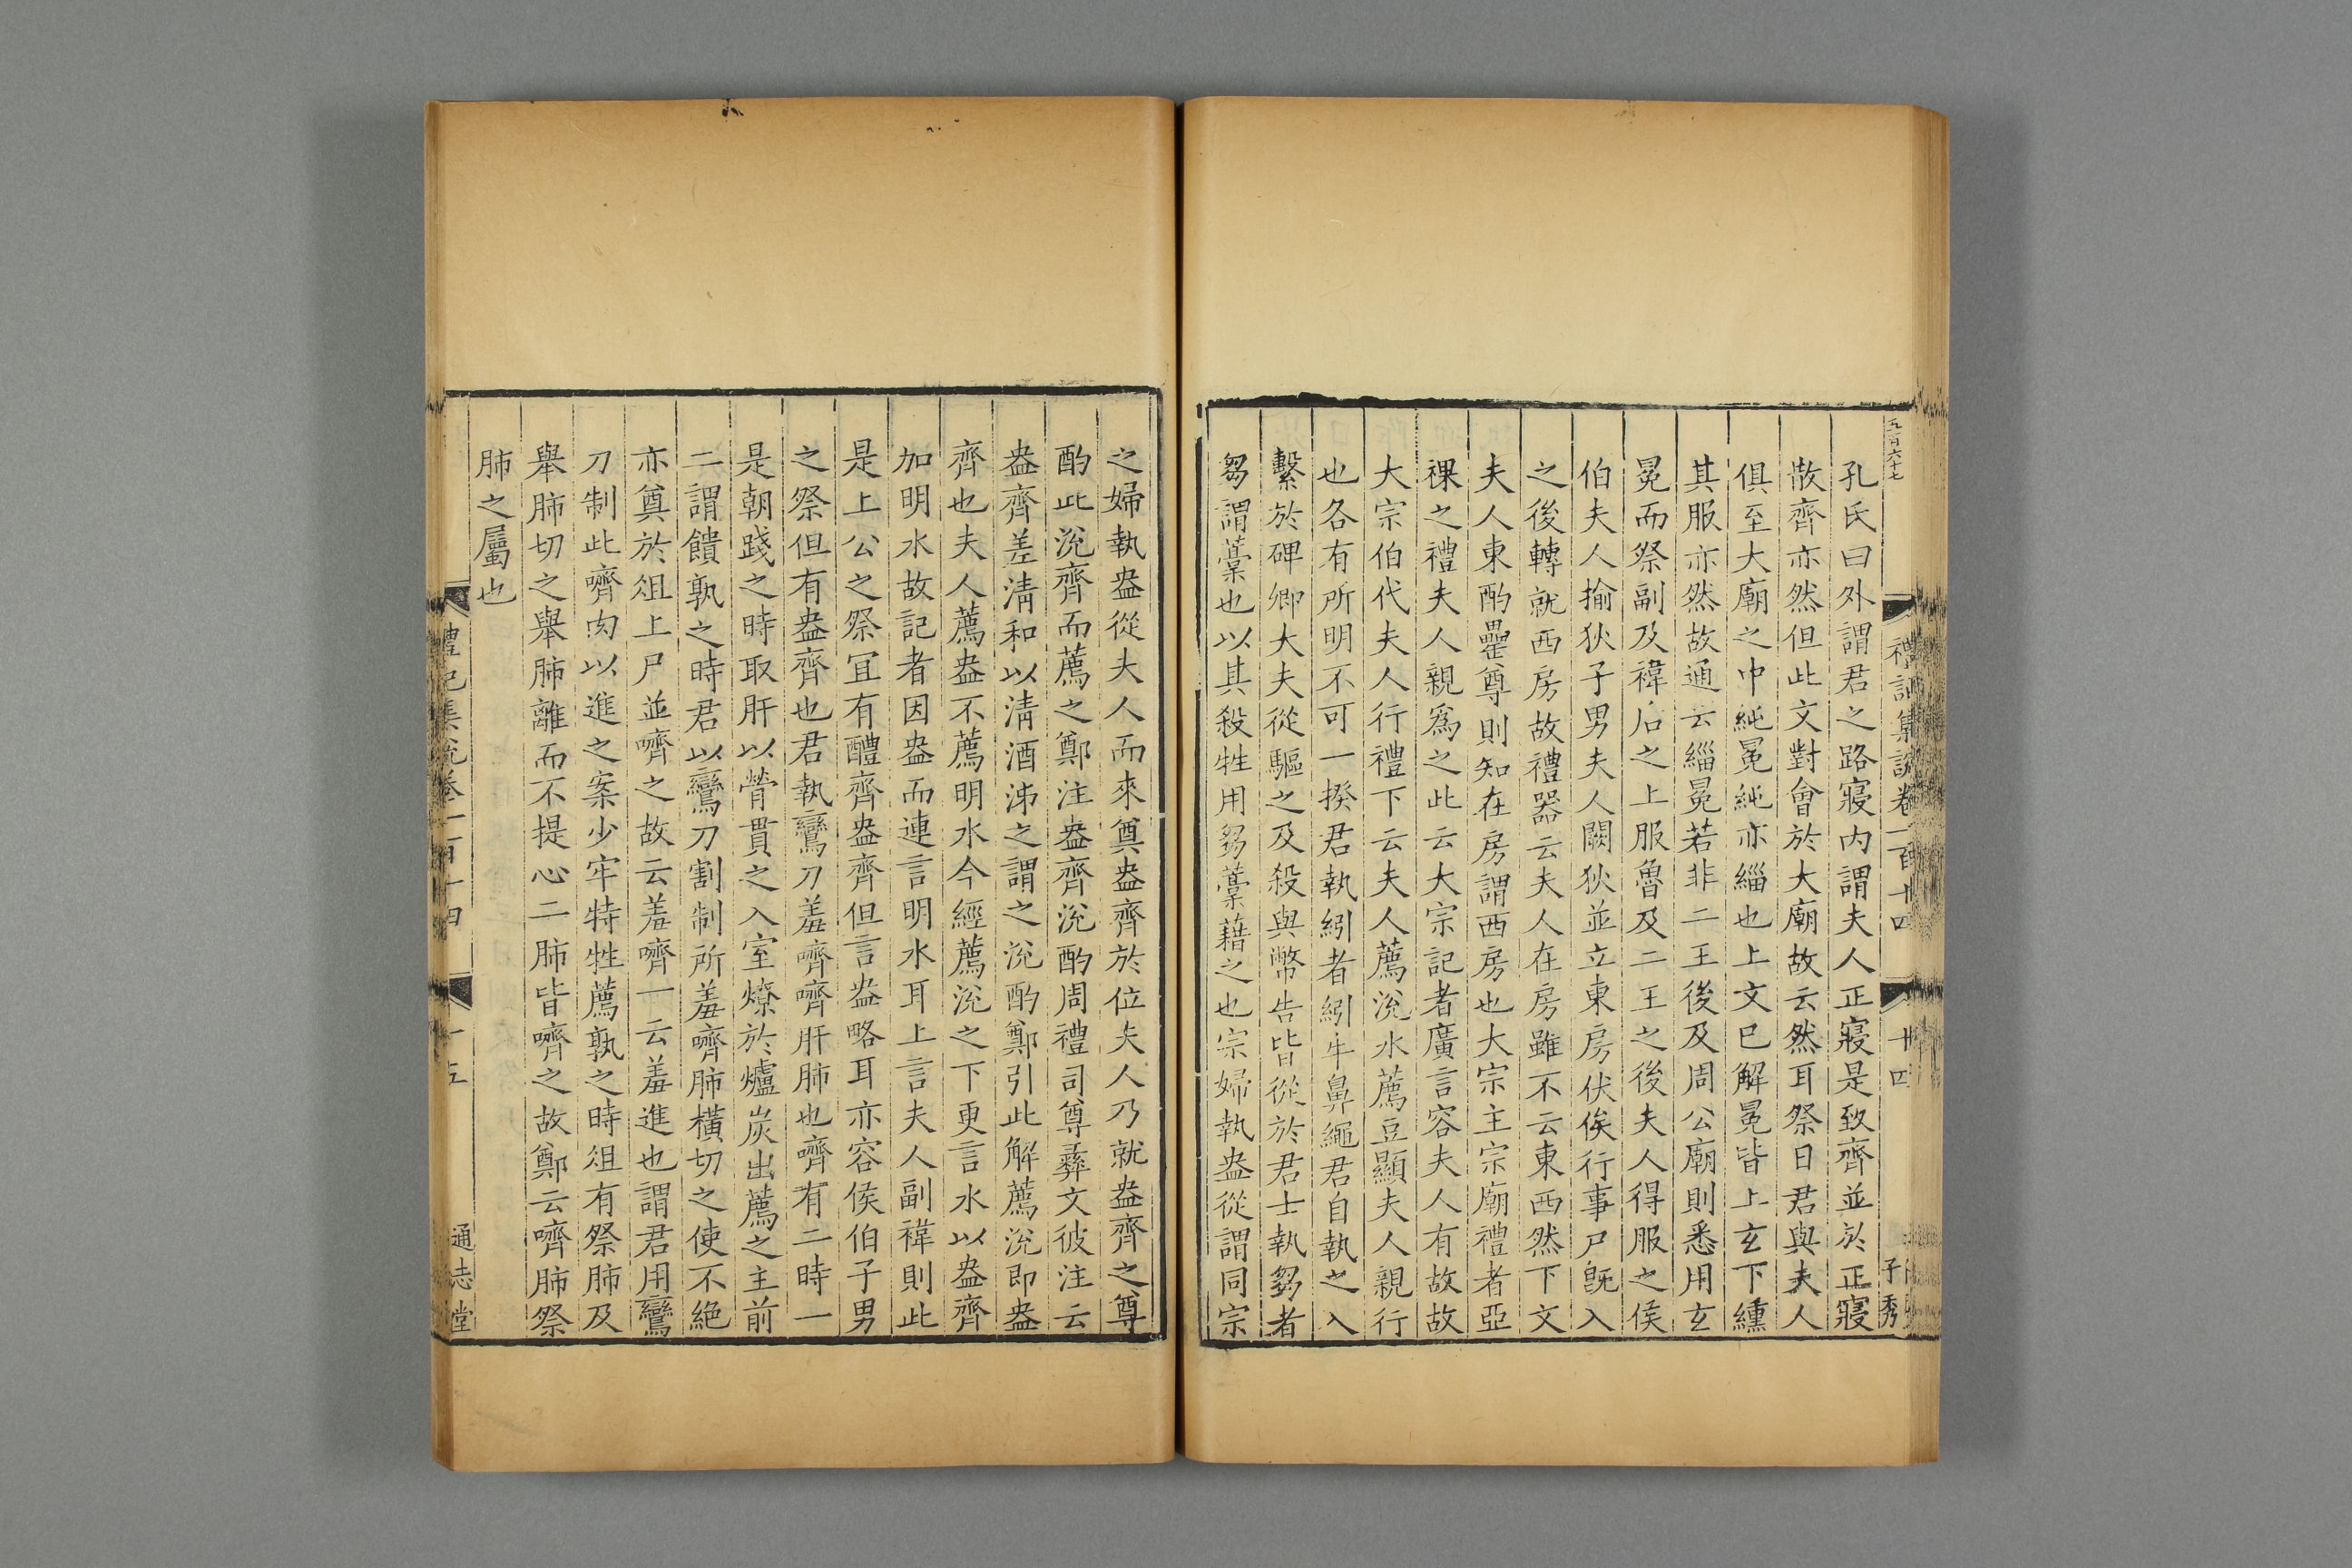 五百六十七
禮記集說卷一百十四
十四
子秀
孔氏曰外謂君之路寢內謂夫人正寢是致齊並於正寢
散齊亦然但此文對會於大廟故云然耳祭日君與夫人
俱至大廟之中純冕純亦緇也上文已解冕皆上玄下纁
其服亦然故通云緇冕若非二王後及周公廟則悉用玄
冕而祭副及褘后之上服魯及二王之後夫人得服之侯
伯夫人揄狄子男夫人闕狄並立東房伏俟行事尸旣入
之後轉就西房故禮器云夫人在房雖不云東西然下文
夫人東酌罍尊則知在房謂西房也大宗主宗廟禮者亞
祼之禮夫人親爲之此云大宗記者廣言容夫人有故故
大宗伯代夫人行禮下云夫人薦涗水薦豆顯夫人親行
也各有所明不可一揆君執紖者紖牛鼻繩君自執之入
繫於碑卿大夫從驅之及殺與幣告皆從於君士執芻者
芻謂藁也以其殺牲用芻藁藉之也宗婦執盎從謂同宗
之婦執盎從夫人而來奠盎齊於位夫人乃就盎齊之尊
酌此涗齊而薦之鄭注盎齊涗酌周禮司尊彝文彼注云
盎齊差淸和以淸酒泲之謂之涗酌鄭引此解薦涗卽盎
齊也夫人薦盎不薦明水今經薦涗之下更言水以盎齊
加明水故記者因盎而連言明水耳上言夫人副褘則此
是上公之祭宜有醴齊盎齊但言盎略耳亦容侯伯子男
之祭但有盎齊也君執鸞刀羞嚌嚌肝肺也嚌有二時一
是朝踐之時取肝以膋貫之入室燎於爐炭出薦之主前
二謂饋孰之時君以鸞刀割制所羞嚌肺橫切之使不絕
亦奠於俎上尸並嚌之故云羞嚌一云羞進也謂君用鸞
刀制此嚌肉以進之案少牢特牲薦孰之時俎有祭肺及
舉肺切之舉肺離而不提心二肺皆嚌之故鄭云嚌肺祭
肺之屬也
禮記集說卷一百十四
十五
通志堂